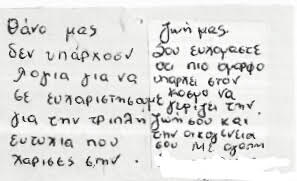 Θάνο μας
δεν υπάρχουν
λογια για να
σε ευχαριστησουμε
για την τριπλή
ευτυχια που
χαρισες στην
ζωή μας.
Σου ευχομαστε
οτι πιο ομορφο
υπαρχει στον
κοσμο να
γεμίζει την
ζωή σου και
την οικογενεια
σου Με αγαπη